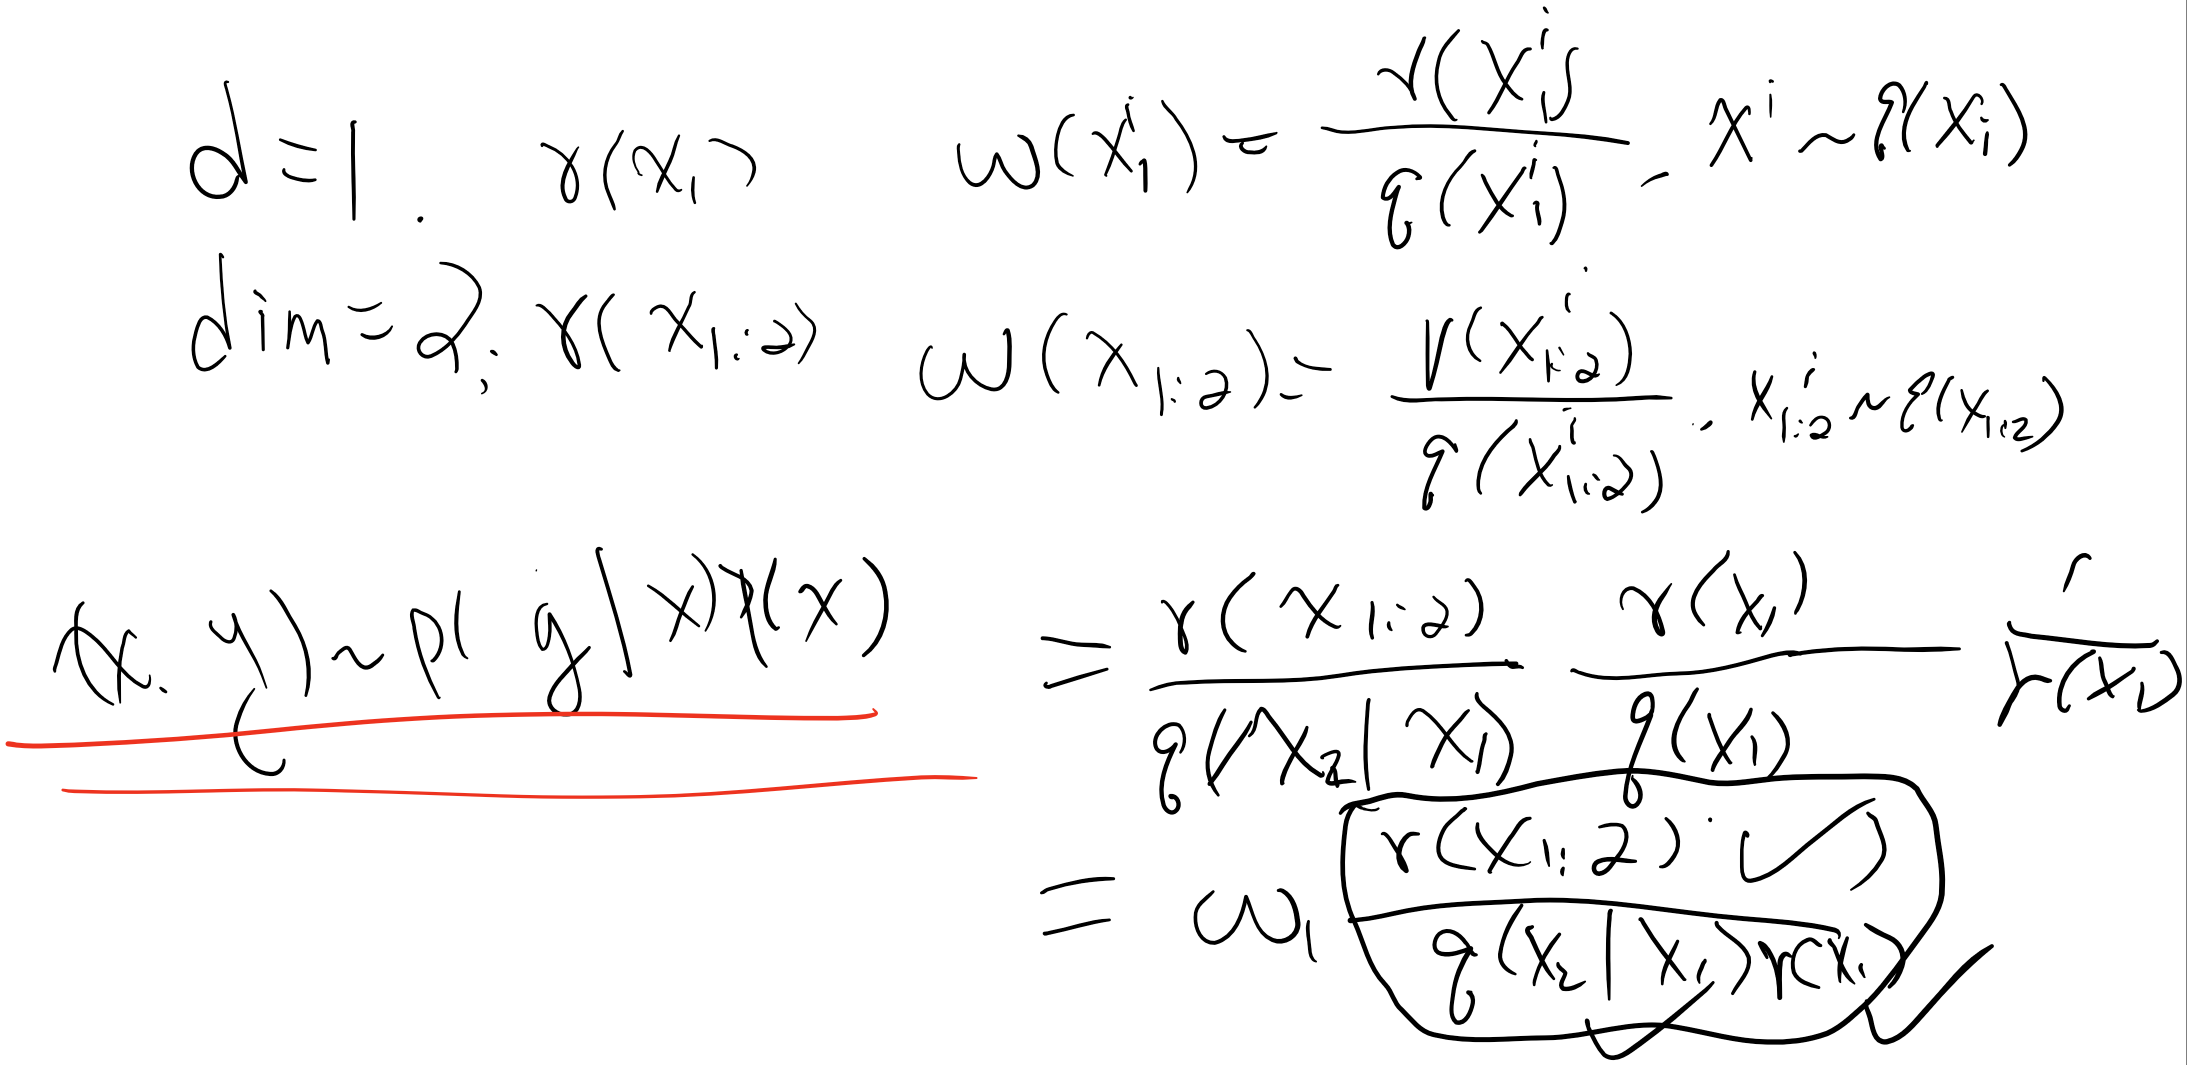 d=1. γ(x₁) ω(x₁ⁱ) = γ(x₁ⁱ) / q(x₁ⁱ) . xⁱ ~ q(x₁)
dim=2; γ(x₁:₂) ω(x₁:₂) = γ(x₁:₂ⁱ) / q(x₁:₂ⁱ) . x₁:₂ⁱ ~ q(x₁:₂)
(x. y) ~ p(y|x)γ(x) = γ(x₁:₂) / q(x₂|x₁) γ(x₁) / q(x₁) 1 / γ(x₁)
= ω₁ γ(x₁:₂) / q(x₂|x₁)γ(x₁)